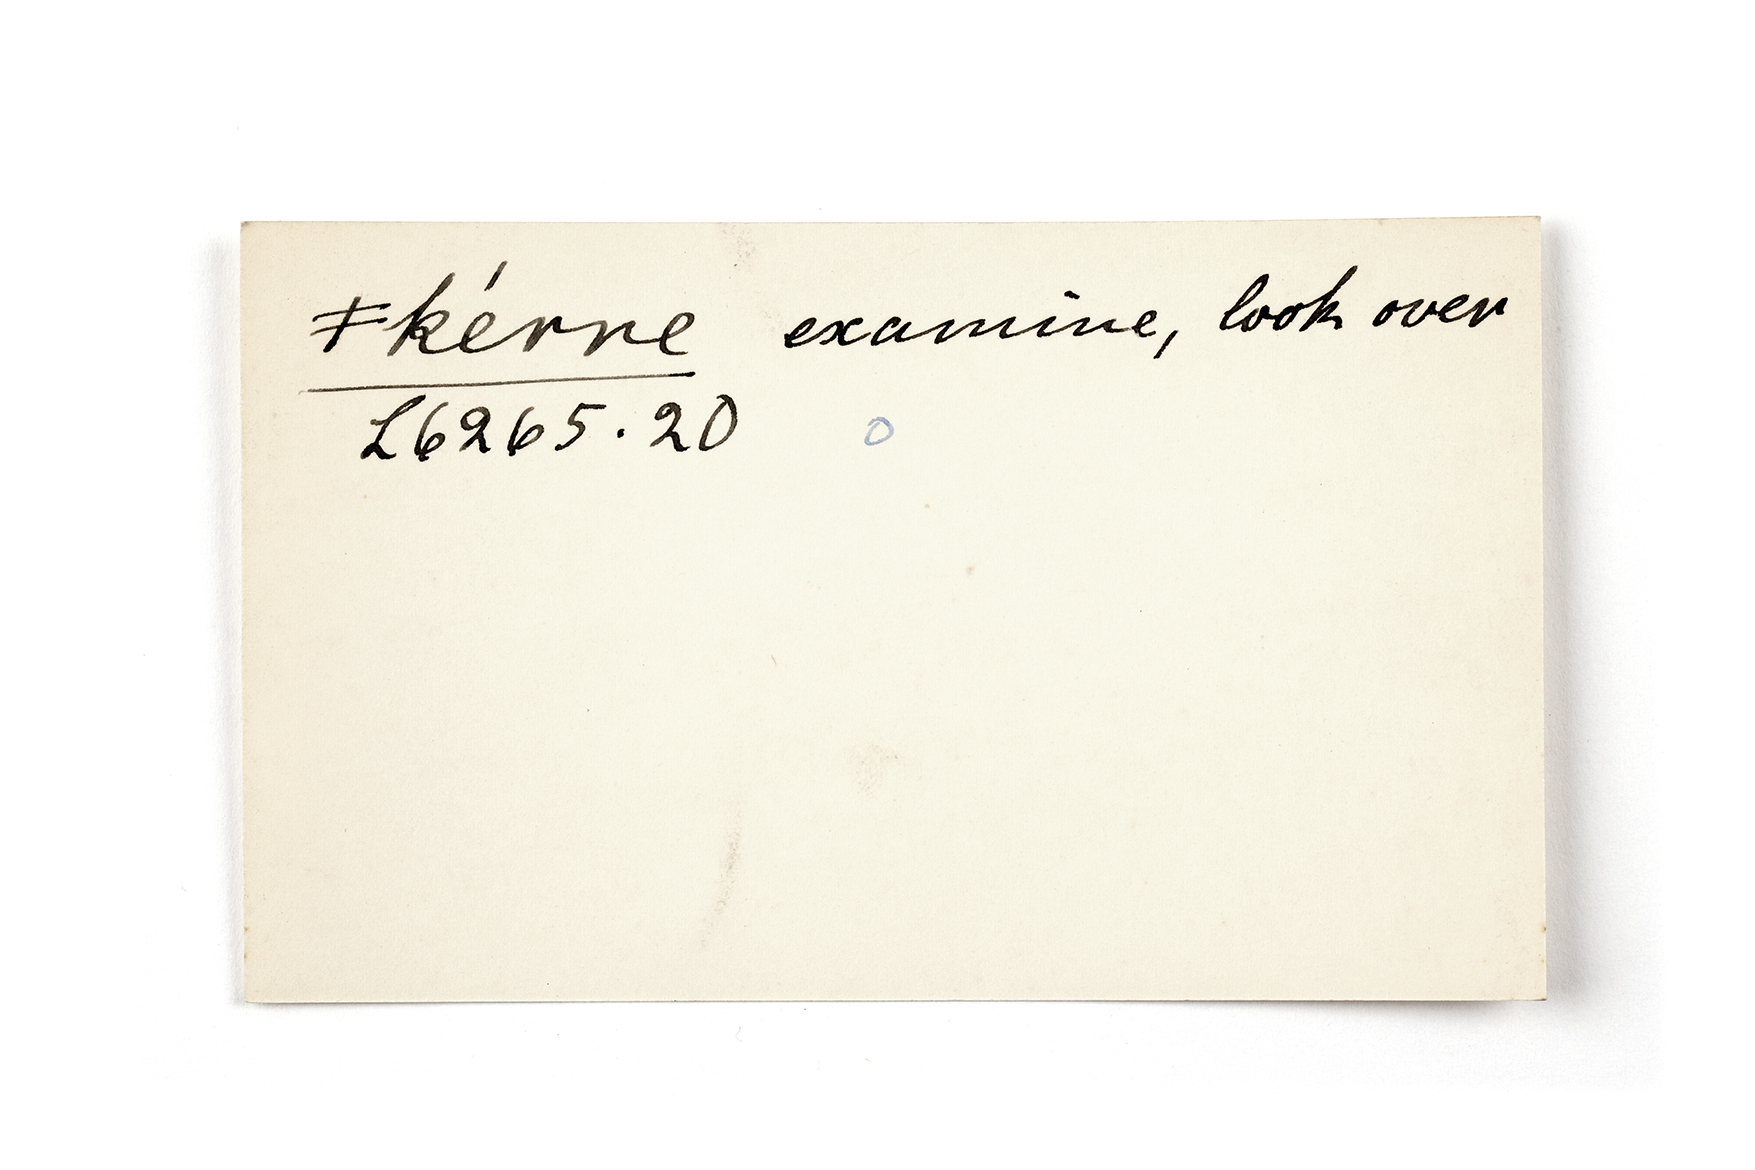 ǂkérre examine, look over
L6265.20 o